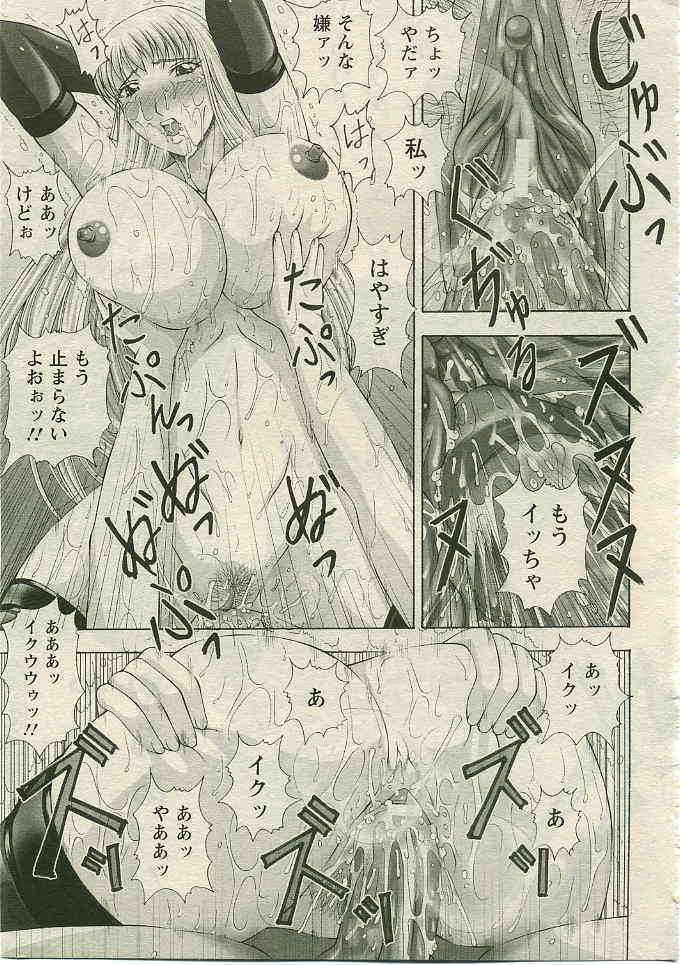 じゅぶっ
ぐぢゅる
ちょッ
やだァ
そんな
嫌ァッ
はっ
私ッ
はっ
ああッ
けどぉ
はやすぎ
たぷっ
たぷんっ
もう
止まらない
よおぉッ!!
ぬぷっ
ズヌヌヌ
もう
イッちゃ
あッ
イクッ
あ
あ
イクッ
ああッ
やああッ
あああッ
イクウウゥッ!!
ズッ
ズッ
ズッ